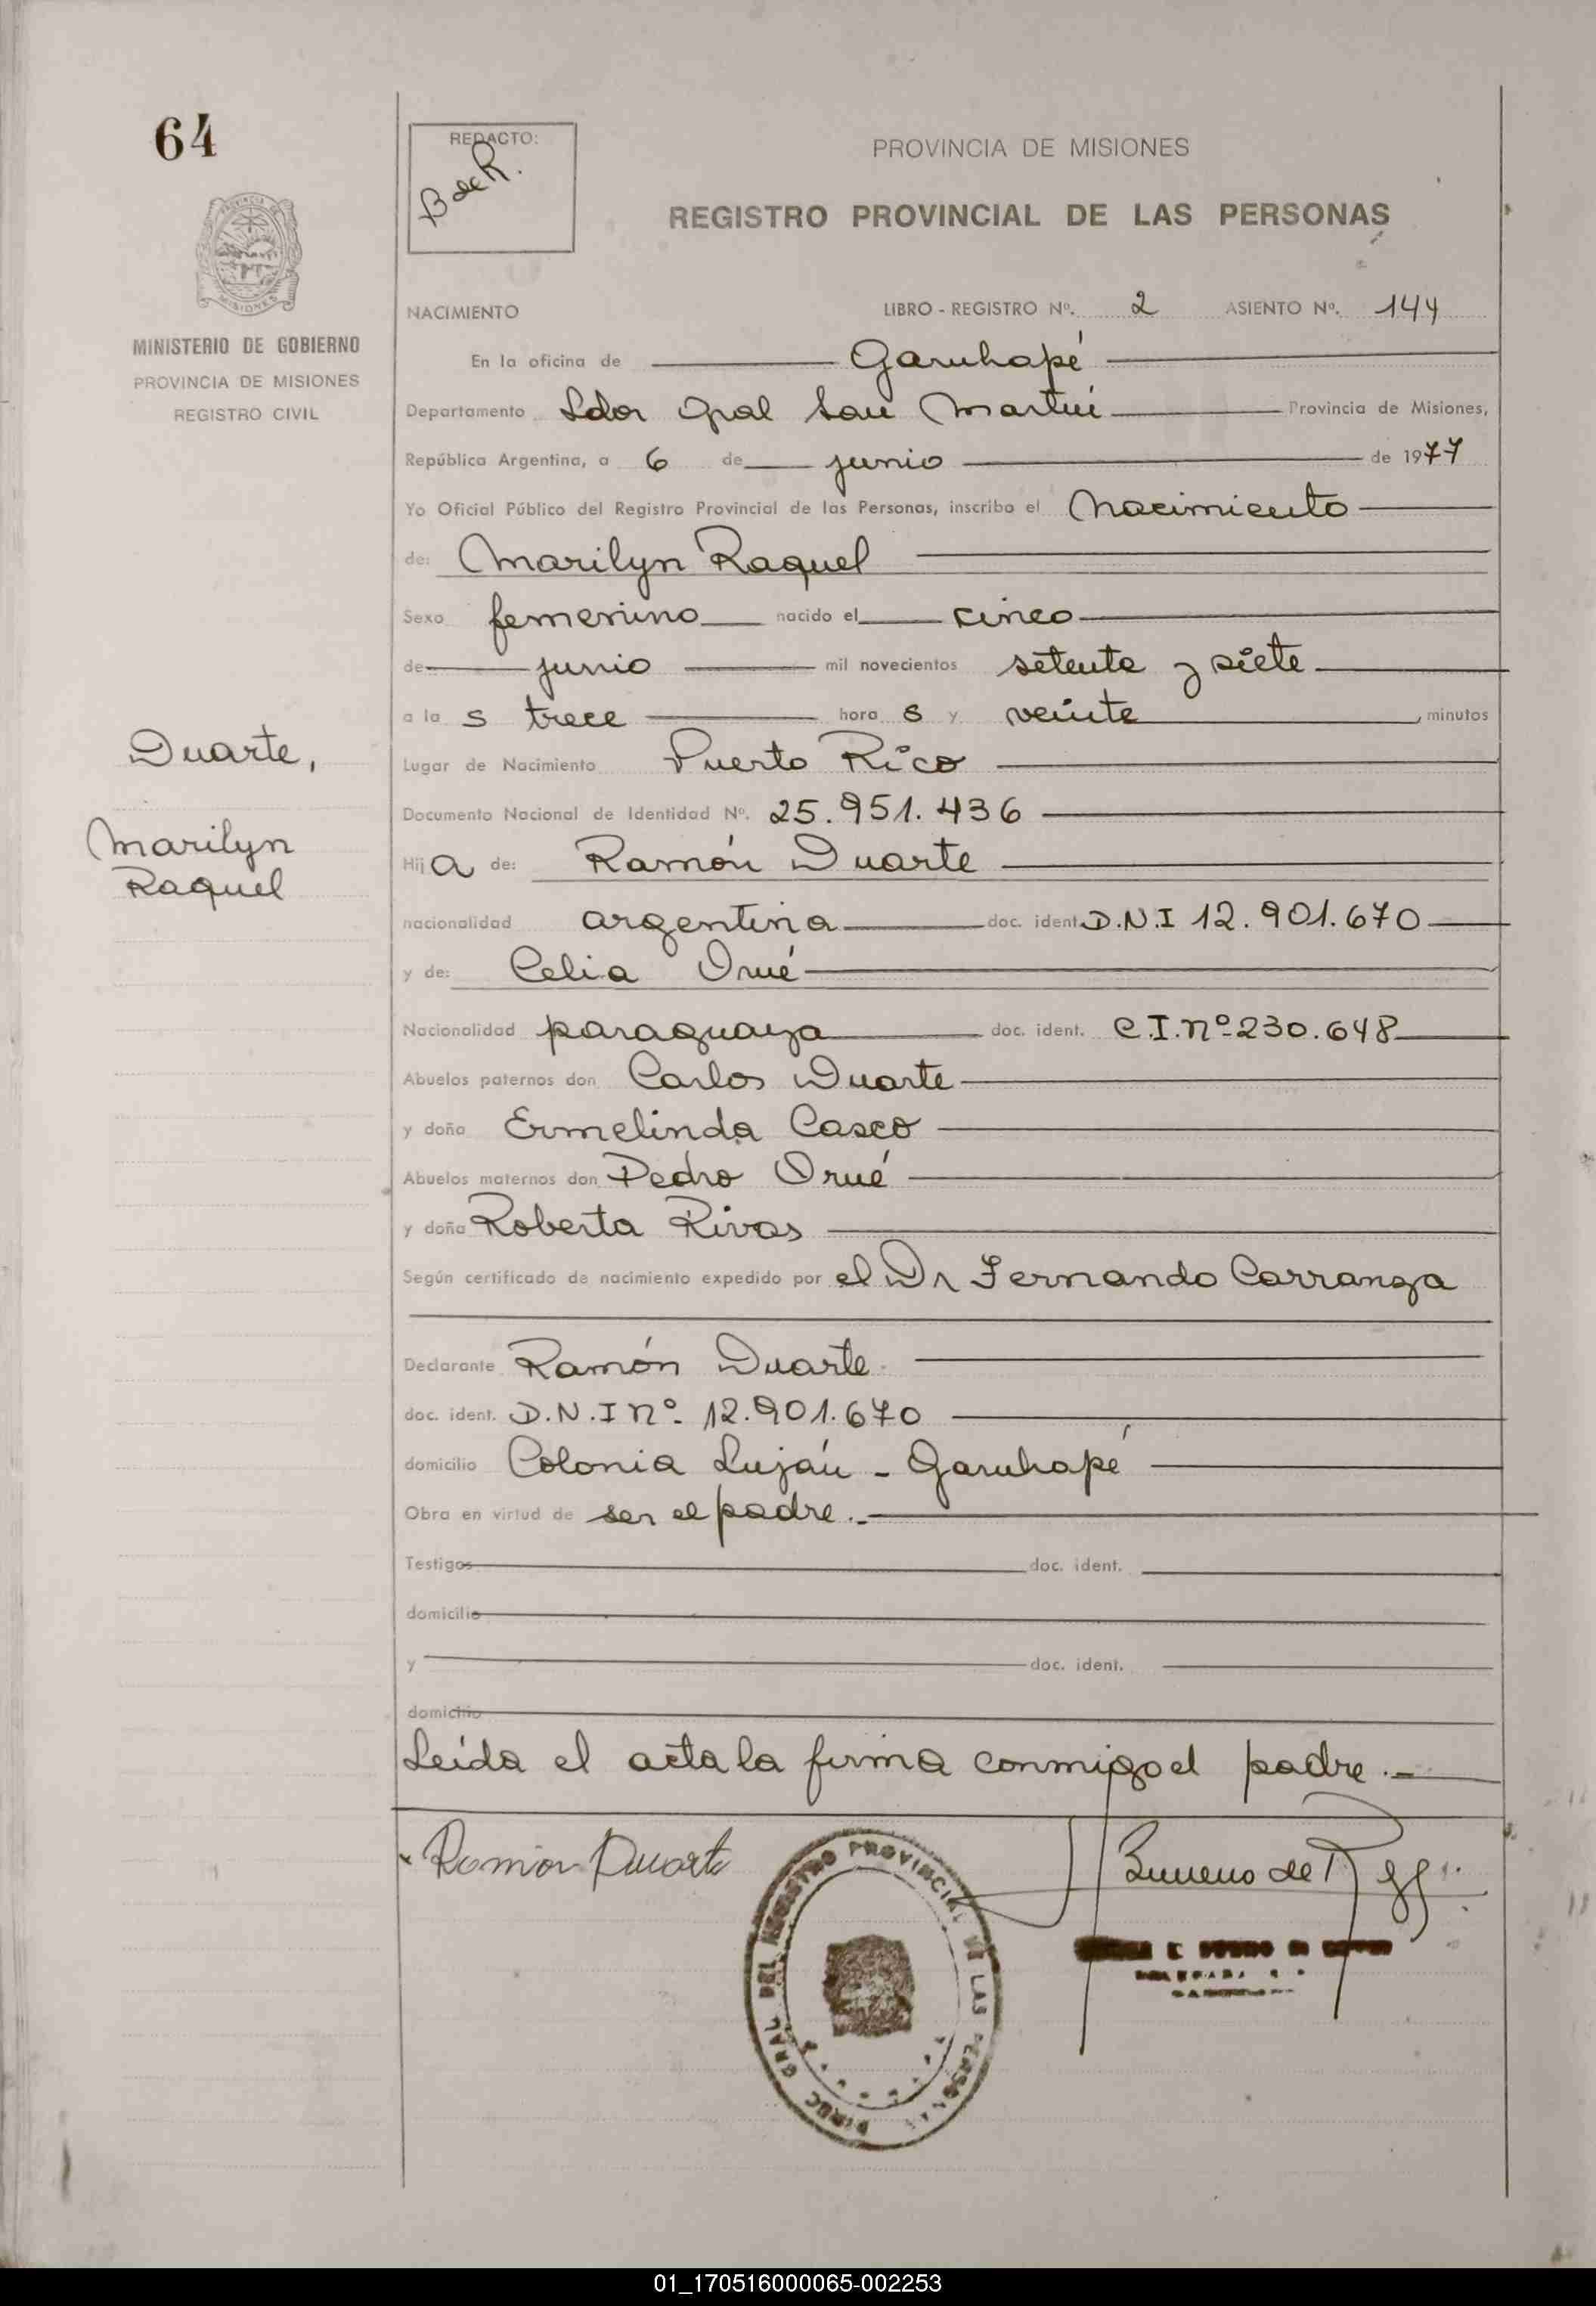 64
REDACTO:
B de R.
PROVINCIA DE MISIONES
REGISTRO PROVINCIAL DE LAS PERSONAS
MISIONES
MINISTERIO DE GOBIERNO
PROVINCIA DE MISIONES
REGISTRO CIVIL
NACIMIENTO LIBRO - REGISTRO Nº. 2 ASIENTO Nº. 144
En la oficina de Garuhapé
Departamento Ldor Gral San Martín Provincia de Misiones,
República Argentina, a 6 de junio de 1977
Yo Oficial Público del Registro Provincial de las Personas, inscribo el Nacimiento
de: Marilyn Raquel
Sexo femenino nacido el cinco
de junio mil novecientos setenta y siete
a la s trece hora s y veinte minutos
Duarte,
Marilyn
Raquel
Lugar de Nacimiento Puerto Rico
Documento Nacional de Identidad Nº. 25.951.436
Hij a de: Ramón Duarte
nacionalidad argentina doc. ident. D.N.I 12.901.670
y de: Celia Orué
Nacionalidad paraguaya doc. ident. C.I.nº 230.648
Abuelos paternos don Carlos Duarte
y doña Ermelinda Casco
Abuelos maternos don Pedro Orué
y doña Roberta Rivas
Según certificado de nacimiento expedido por el Dr Fernando Carranza
Declarante Ramón Duarte.
doc. ident. D.N.I nº. 12.901.670
domicilio Colonia Luján - Garuhapé
Obra en virtud de ser el padre.-
Testigos doc. ident.
domicilio
y doc. ident.
domicilio
Leída el acta la firma conmigo el padre.-
Ramon Duarte
DIREC. GRAL. DEL REGISTRO PROVINCIAL DE LAS PERSONAS
01_170516000065-002253